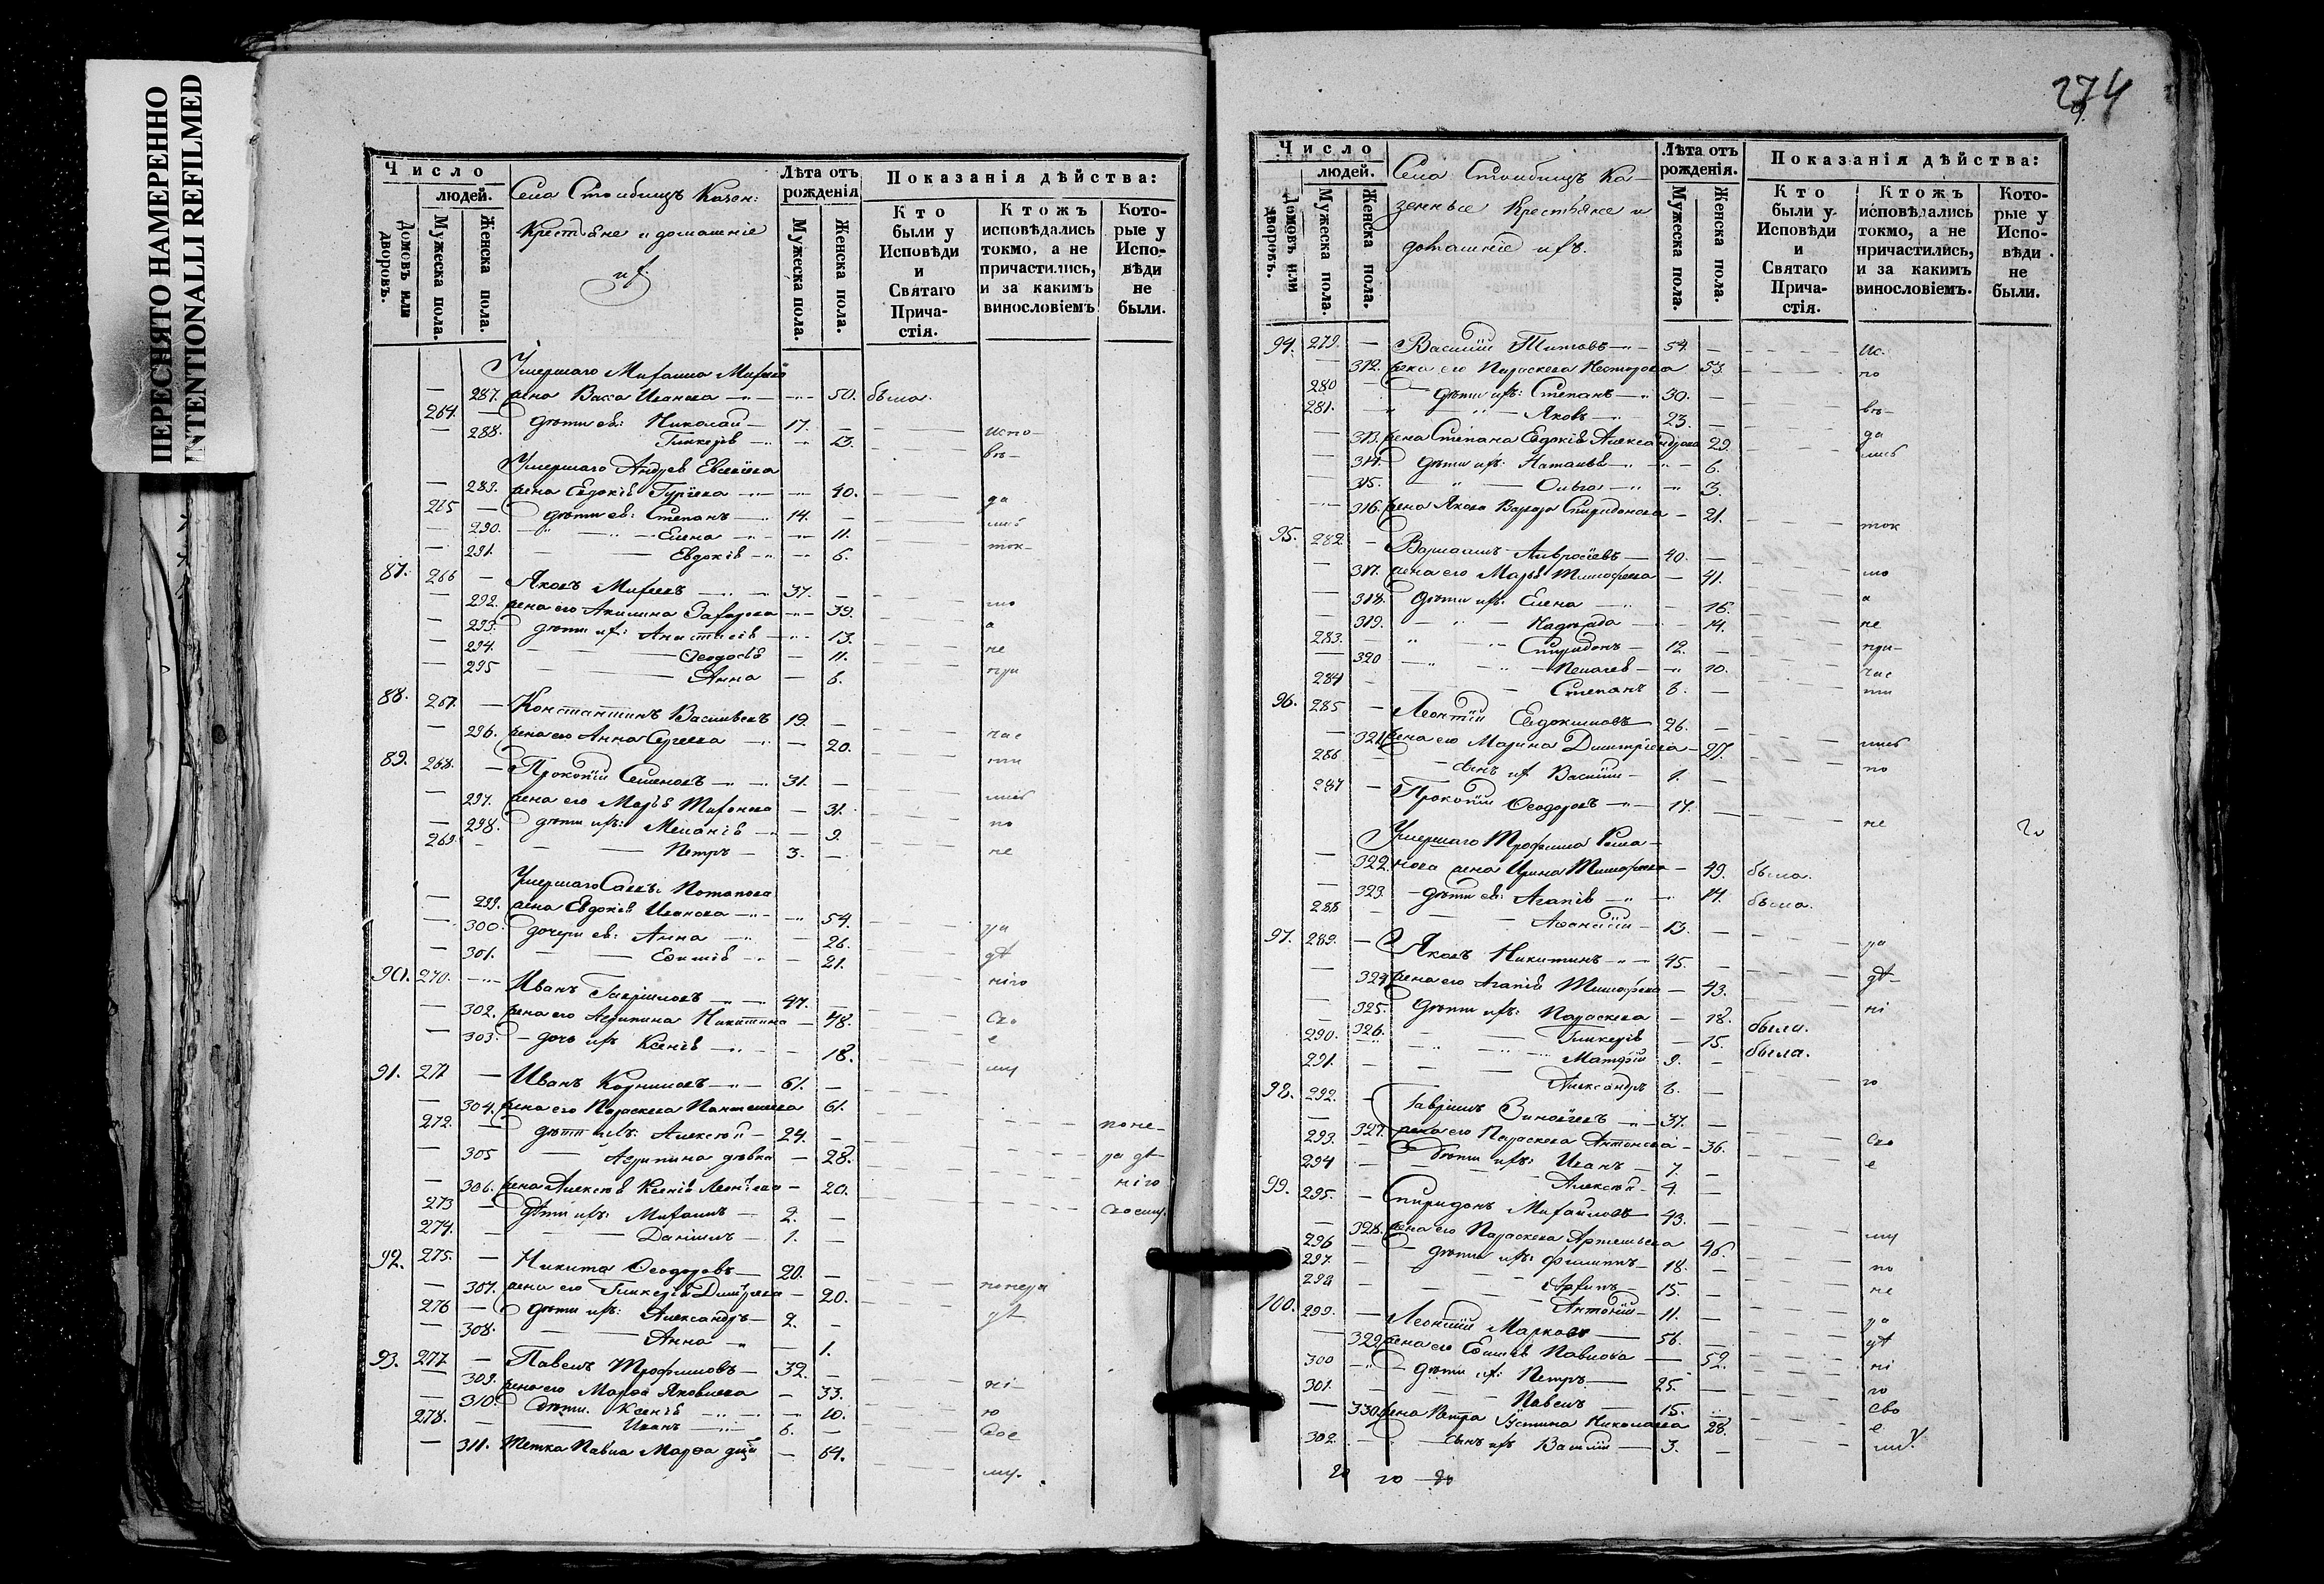 ПЕРЕСНЯТО НАМЕРЕННО
INTENTIONALLI REFILMED
Число
людей.
Домовъ или дворовъ.
Мужеска пола.
Женска пола.
Села Столбищъ Казен:
Крестьяне и домашніе
их
Лѣта отъ рожденія
Мужеска пола.
Женска пола.
Показанія дѣйства:
Кто были у Исповѣди и Святаго Причастія.
Ктожъ исповѣдались токмо, а не причастились, и за какимъ винословіемъ
Которые у Исповѣди не были.
Умершаго Михаила
287. жена Васса Иванова 50. была.
264. дѣти ея: Николай 17. испо-
288. Гликерія 13. вѣ-
Умершаго Андрея Евсеева
289. жена Евдокія Гуріева 40. да
265 дѣти ея: Степанъ 14. лись
290. Елена 11. ток-
291. Евдокія 6.
87. 266 Яковъ Михеевъ 37. мо
292. жена его Акилина Захарова 39. а
293. дѣти их: Анастасія 13. не
294. Ѳеодосія 11. при
295 Анна 6.
88. 267. Константинъ Васильевъ 19. час
296. жена его Анна Сергеева 20. ти
89. 268. Прокопій Семеновъ 31. лись
297. жена его Марья Тихонова 31. по
298. дѣти ихъ: Меланія 9. не
269. Петръ 3.
Умершаго Саввы Потапова
299. жена Евдокія Иванова 54. ра
300. дочери ея: Анна 26. дѣ
301. Евфимія 21. нію
90. 270. Иванъ Гавріиловъ 47. сво
302. жена его Агрипина Никитина 48. е
303. дочь ихъ Ксенія 18. му
91. 271 Иванъ Корниловъ 61.
304. жена его Параскева Пантелеева 61. по не-
272. дѣти ихъ: Алексѣй 24. ра дѣ-
305 Агрипина дѣвка 28. нію
306. жена Алексѣя Ксенія Леонтіева 20. своему.
273 дѣти ихъ: Михаилъ 2.
274. Даніилъ 1.
92. 275. Никита Ѳеодоровъ 20. по нера
307. жена его Гликерія Димитріева 20. дѣ
276 дѣти ихъ: Александръ 2.
308. Анна 1.
93. 277. Павелъ Трофимовъ 32. ні-
309. жена его Марѳа Яковлева 33. ю
310. дѣти. Ксенія 10. свое
278. Иванъ 6.
311. Тетка Павла Марѳа 64. му.
274
Число
людей.
Домовъ или дворовъ.
Мужеска пола.
Женска пола.
Села Столбищъ Ка-
зенные Крестьяне и
домашніе ихъ.
Лѣта отъ рожденія.
Мужеска пола.
Женска пола.
Показанія дѣйства:
Кто были у Исповѣди и Святаго Причастія.
Ктожъ исповѣдались токмо, а не причастились, и за какимъ винословіемъ.
Которые у Исповѣди не были.
94. 279. Василій Титовъ 54. ис.
312. жена его Параскева Несторова 53. по
280 дѣти ихъ: Степанъ 30. вѣ-
281. Яковъ 23. да
313. жена Степана Евдокія Александрова 29. лись
314. дѣти ихъ: Наталья 6.
315. Ольга 3.
316. жена Якова Варвара Спиридонова 21. ток
95. 282 Варлаамъ Амвросіевъ 40. мо
317. жена его Марья Тимофеева 41. а
318. дѣти ихъ: Елена 16. не
319. Надежда 14. при-
283. Спиридонъ 12.
320 Пелагея 10. час
284 Степанъ 8. ти
96. 285 Леонтій Евдокимовъ 26. лись
321. жена его Марина Димитріева 27. по
286 сынъ их Василій 1.
287 Прокопій Ѳеодоровъ 17. не
Умершаго Трофима Рома-
322. нова жена Ирина Тимофеева 49. была.
323. дѣти ея: Агапія 14. была.
288 Аѳанасій 13. ра
97. 289. Яковъ Никитинъ 45. дѣ-
324. жена его Агапія Тимофеева 43. ні
325. дѣти ихъ: Параскева 18. была.
326. Гликерія 15. была.
290. Матѳій 9.
291. Александръ 8. ю
98. 292. Гавріилъ Зиновіевъ 37. сво
327. жена его Параскева Антонова 36. е
293. дѣти ихъ: Иванъ 7.
294 Алексѣй 4.
99. 295. Спиридонъ Михайловъ 43. му
328. жена его Параскева Артемьева 46. по
296 дѣти ихъ: Филиппъ 18. не
297. 15.
298 Антоній 11. ра
100. 299. Леонтій Марковъ 56. дѣ
329. жена его Евфимія Павлова 52. ні
300 дѣти их: Петръ 25. ю
301. Павелъ 15. сво
330. жена Петра Устина Николаева 28. е
302. сынъ ихъ Василій 3. му.